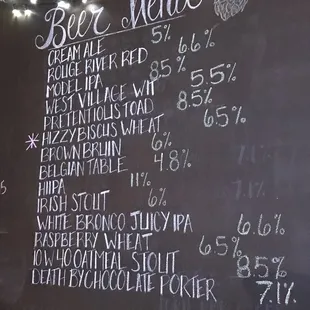 Beer Menu
CREAM ALE 5%
ROUGE RIVER RED 6.6%
MODEL IPA 8.5%
WEST VILLAGE WIT 5.5%
PRETENTIOUS TOAD 8.5%
* HIZZYBISCUS WHEAT 6.5%
BROWN BRUIN 6%
BELGIAN TABLE 4.8%
HIIPA 11%
IRISH STOUT 6%
WHITE BRONCO JUICY IPA 6.6%
RASPBERRY WHEAT 6.5%
10W40 OATMEAL STOUT 8.5%
DEATH BY CHOCOLATE PORTER 7.1%